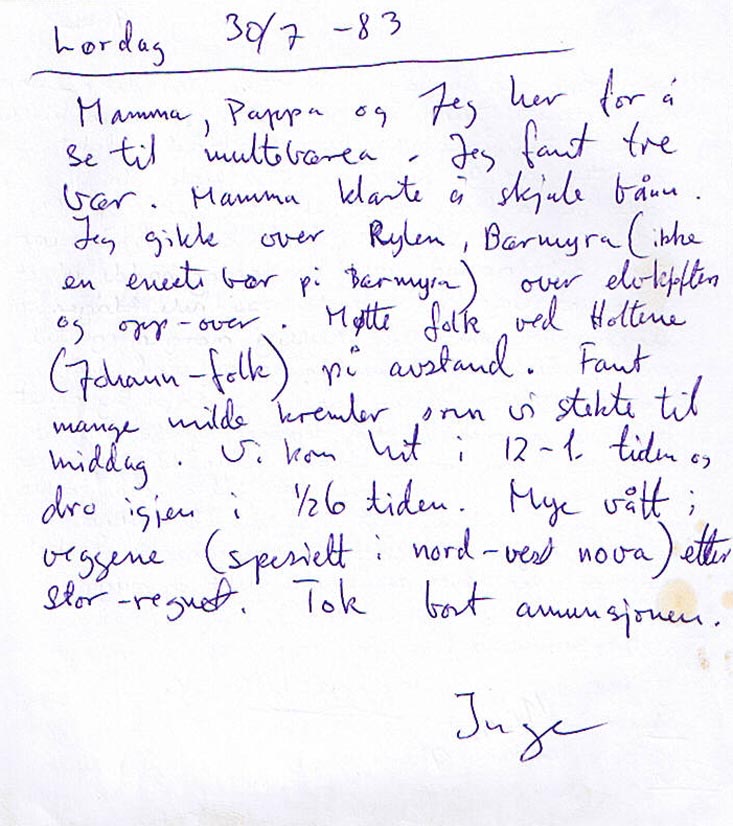 Lørdag 30/7 -83
Mamma, Pappa og Jeg her for å
se til multebærea - Jeg fant tre
bær. Mamma klarte å skjule bånn.
Jeg gikk over Rylen, Bærmyra (ikke
en eneste bær på Bærmyra) over elvkjften
og opp-over. Møtte folk ved Holtene
(Johann-folk) på avstand. Fant
mange milde kremler som vi stekte til
middag. Vi kom hit i 12-1. tiden og
dro igjen i 1/26 tiden. Mye vått i
veggene (spesielt i nord-vest nova) etter
stor-regnet. Tok bort ammunsjonen.
Inge